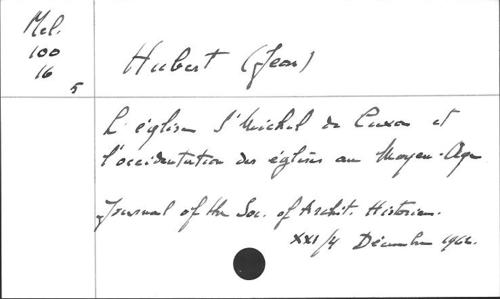 Mel.
100
16
5
Hubert (Jean)
L'église S'Michel de Cuxa et
l'occidentation des églises au Moyen-Age
Journal of the Soc. of Archit. Historian.
XXI/4 Décembre 1962.